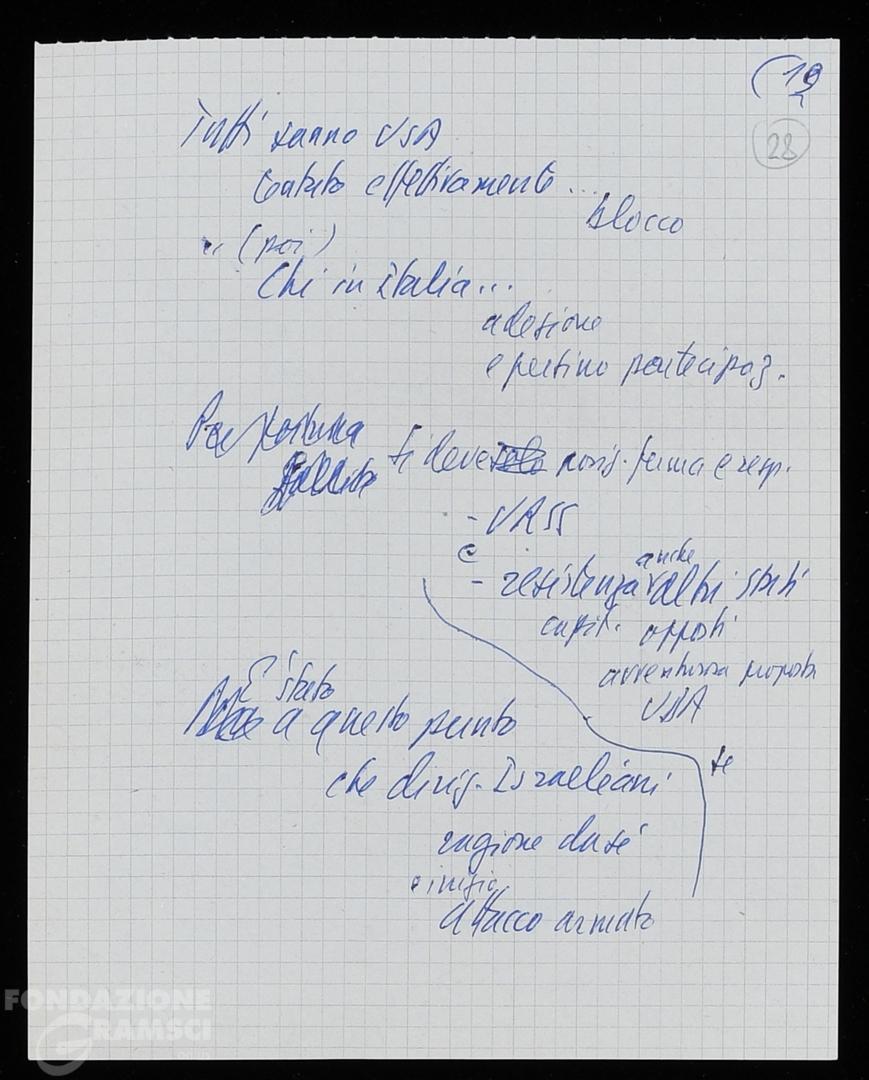 (19
28
Tutti sanno USA
tentato effettivamente...
blocco
(poi)
Chi in Italia...
adesione
e perfino partecipaz.
Per fortuna
fallito si deve posiz. ferma e resp.
- URSS
e
- resistenza anche altri stati
capit. opposti
avventura proposta
USA
È stato
a questo punto
che dirig. Israeliani
se
ragione da sé
e inizio
attacco armato
FONDAZIONE
GRAMSCI